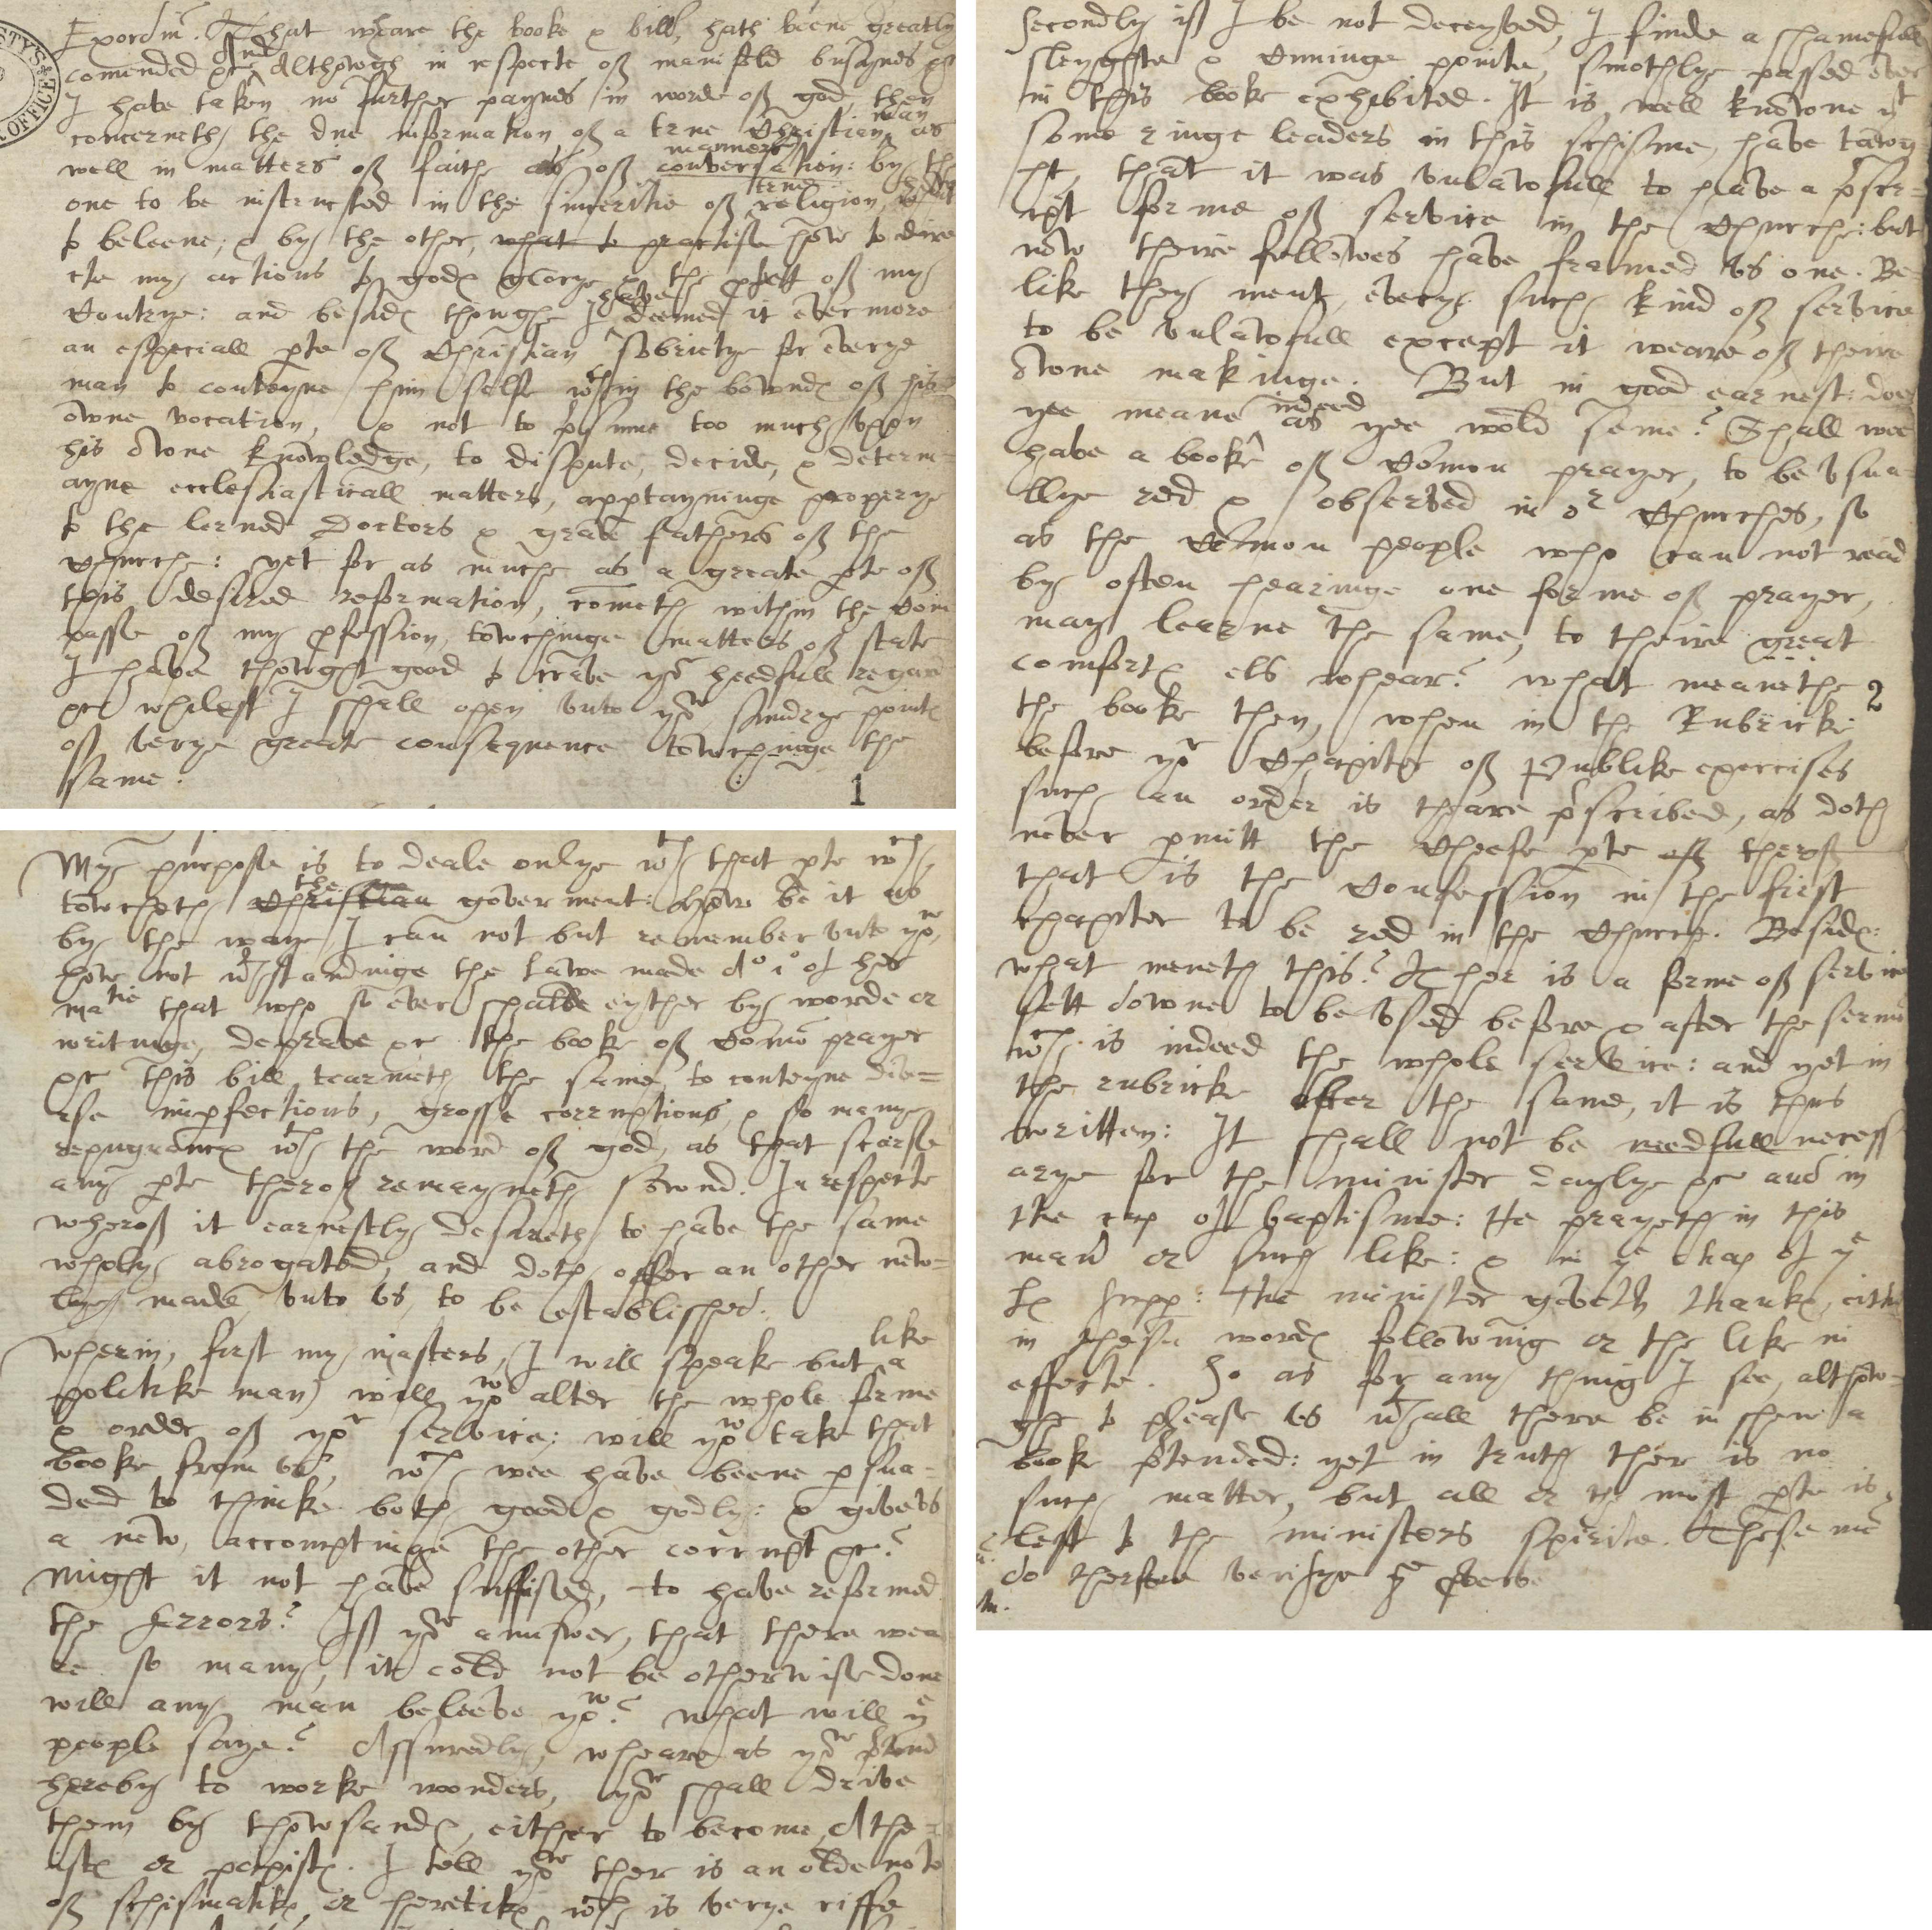 Exordiū. That wheare the booke & bill, hath beene greatly
comended &c And Althowgh in respecte of manifold busynes &c
I have taken no further paynes in worde of god, then
concerneth the due information of a true Christian man as
well in matters of faithe as of conversation: manners by the
one to be instructed in the sinceritie of true religion,
to beleeve, & by the other, what to practise how to dire
cte my actions to gods glorye & the pfett of my
Contrye: and besides thowghe I have deemed it evermore
an especiall pte of Christian sobrietye for everye
man to conteyne him selfe wthin the bowndes of his
owne vocation, & not to psume too much vppon
his owne knowledge, to dispute, decide, & determ-
ayne ecclesiasticall matters, apptayninge properlye
to the lerned Doctors & grave fathers of the
Churche: yet for as muche as a greate pte of
this desired reformation, cometh within the Com
passe of my pfession, towchinge matters of state
I have thowght good to crave yow heedfull regard
&c whilest I shall open vnto yow sundrye pointes
of verye greate consequence towchinge the
same:
1
My purpose is to deale onlye wth that pte wch
towcheth Christian the goverment: how be it as
by the waye I can not but remember vnto yow,
how not wthstandinge the lawe made Ao 1o of her
matie that who so ever shalbe eyther by worde or
writinge, deprave &c the booke of Comō prayer
&c this bill tearmeth the same to conteyne dive=
rse impfections, grosse corruptions, & so many
repugnances wth the word of god, as that scarse
any pte therof remayneth sownd. In respecte
wherof it earnestly desireth to have the same
wholy abrogated, and doth offer an other new-
lye made vnto vs, to be established.
Wherin, first my masters, (I will speake but like a
politike man) will yow alter the whole forme
& order of yor service: will yow take that
booke from vs, wch wee have beene psua-
ded to thinke both good & godly: & give vs
a new, accomptinge the other corrupt &c?
Might it not have suffised, to have reformed
the Errors? If yow answer, that there wea
re so many, it cold not be otherwise done
will any man beleeve yow? what will ye
people saye? Assuredly, wheare as yow ptend
hereby to worke wonders, yow shall drive
them by thowsandes, either to become Athe
istes or papistes. I tell yow ther is an olde note
of schismatikes or heretikes wch is verye riffe
Secondly if I be not deceyved, I finde a shamefull
sleyghte & cuninge pointe, smothlye passed over
in this booke exhibited. It is well knowne yt
some ringe leaders in this schisme, have tawg
ht, that it was vnlawfull to have a pscr-
ipt forme of service in the Churche: but
now theire fellowes have framed vs one. Be
like they ment, everye such kind of service
to be vnlawfull except it weare of theire
owne makinge. But in good earnest: doe
yee meane indeed as yee wold seme? Shall wee
have a booke of Comon prayer, to be vsua-
llye red & observed in or Churches, so
as the Comon people who can not read
by often hearinge one forme of prayer,
may learne the same, to theire great
comfortes els whear? what meanethe 2
the booke then, when in the Rubricke
before yor Chapiter of Publike exercises
such an order is theare pscribed, as doth
never pmitt the Cheefe pte of therof
that is the Confession in the first
chapiter to be red in the Church. Besides:
what meneth this? Ther is a forme of service
sett downe to be vsed before & after the sermō
wch is indeed the whole service: and yet in
the rubricke after the same, it is thus
written: It shall not be needfull necess
arye for the minister daylye &c and in
the cap of baptisme: He prayeth in this
maner or such like: & in ye chap of ye
Ls supp: the minister geveth thankes, eithe
in these wordes following or the like in
effecte. So as for any thing I see, althow-
ghe to please vs wthall there be in shew a
book ptended: yet in truth ther is no
such matter, but all or the most pte is
left to the ministers spirite. These mē
do therfore verifye ye